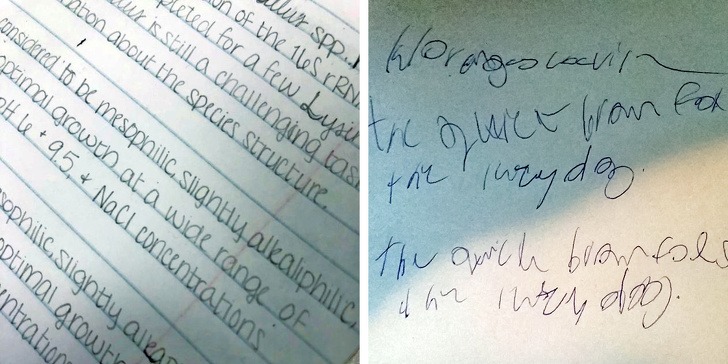 llus spp.
on of the 16S rRN
pleted for a few Lysi
us is still a challenging tas
ation about the species structure
considered to be mesophilic, slightly alkaliphilic,
optimal growth at a wide range of
pH 6 & 9.5, & NaCl concentrations
sophilic, slightly alka
optimal growt
ntration
the quick brown fox
the lazy dog.
the quick brown foxs
the lazy dog.